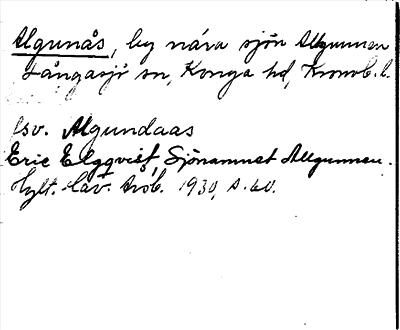 Algunås, by nära sjön Allgunnen
Långasjö sn, Konga hd, Kronob. l.
fsv. Algundaas
Eric Elgqvist, Sjönamnet Allgunnen.
Hylt. Cav. årsb. 1930, s. 60.